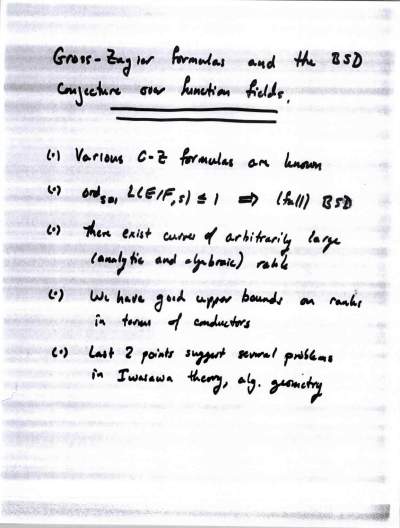 Gross-Zagier formulas and the BSD
Conjecture over function fields.
(•) Various G-Z formulas are known
(•) ord_{s=1} L(E/F,s) ≤ 1 ⟹ (full) BSD
(•) there exist curves of arbitrarily large
(analytic and algebraic) rank
(•) We have good upper bounds on ranks
in terms of conductors
(•) Last 2 points suggest several problems
in Iwasawa theory, alg. geometry